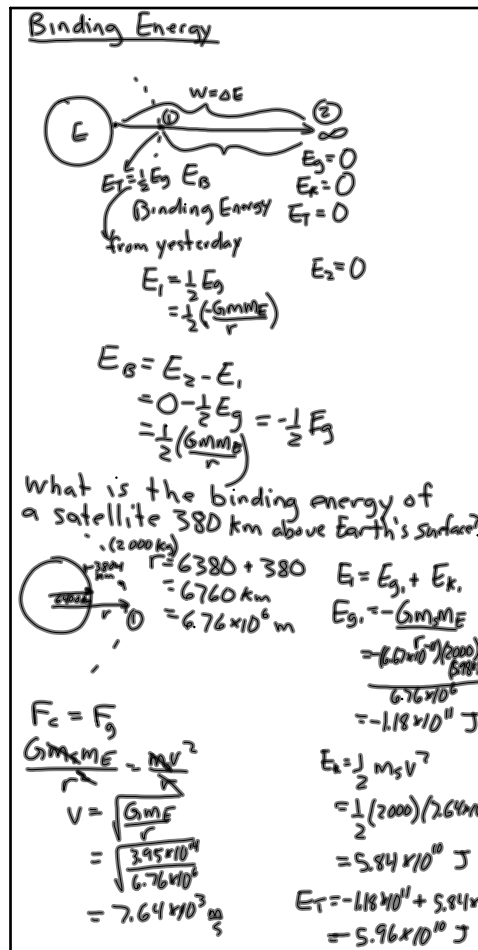 Binding Energy
W=ΔE
E
①
②
∞
E_T=½E_g E_B
E_g=0
E_K=0
E_T=0
Binding Energy
from yesterday
E_1=½E_g
E_2=0
=½(-Gmm_E/r)
E_B=E_2-E_1
=0-½E_g=-½E_g
=½(Gmm_E/r)
What is the binding energy of
a satellite 380 km above Earth's surface?
(2000 kg)
380 km
r
①
r=6380+380
=6760 km
=6.76×10⁶ m
E_1=E_g1+E_K1
E_g1=-Gm_sm_E/r
6.76×10⁶
=-1.18×10¹¹ J
F_c=F_g
Gm_sm_E/r²=mv²/r
v=√(Gm_E/r)
=√(3.95×10¹⁴/6.76×10⁶)
=7.64×10³ m/s
E_K=½m_sv²
=½(2000)(7.64×10
=5.84×10¹⁰ J
E_T=-1.18×10¹¹+5.84×
=-5.96×10¹⁰ J